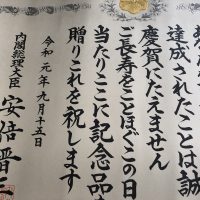 達成されたことは誠
慶賀にたえません
ご長寿をことほぐこの日
当たりここに記念品
贈りこれを祝します
令和元年九月十五日
内閣総理大臣 安倍晋